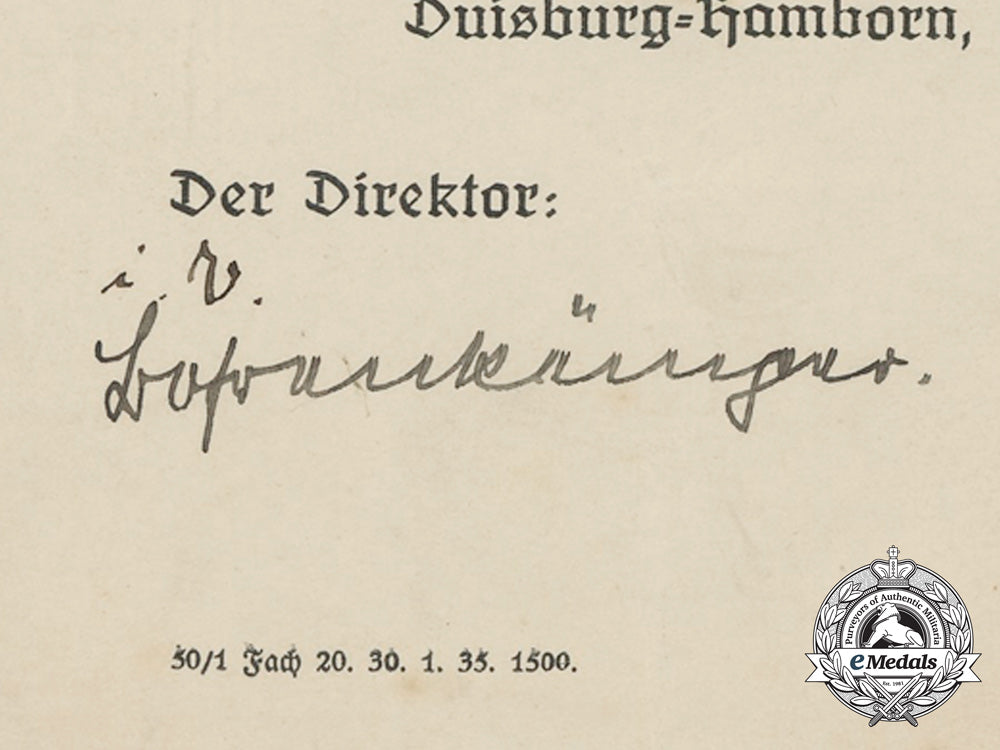 Duisburg=Hamborn,
Der Direktor:
i. V.
50/1 Fach 20. 30. 1. 35. 1500.
Purveyors of Authentic Militaria
eMedals
Est. 1981